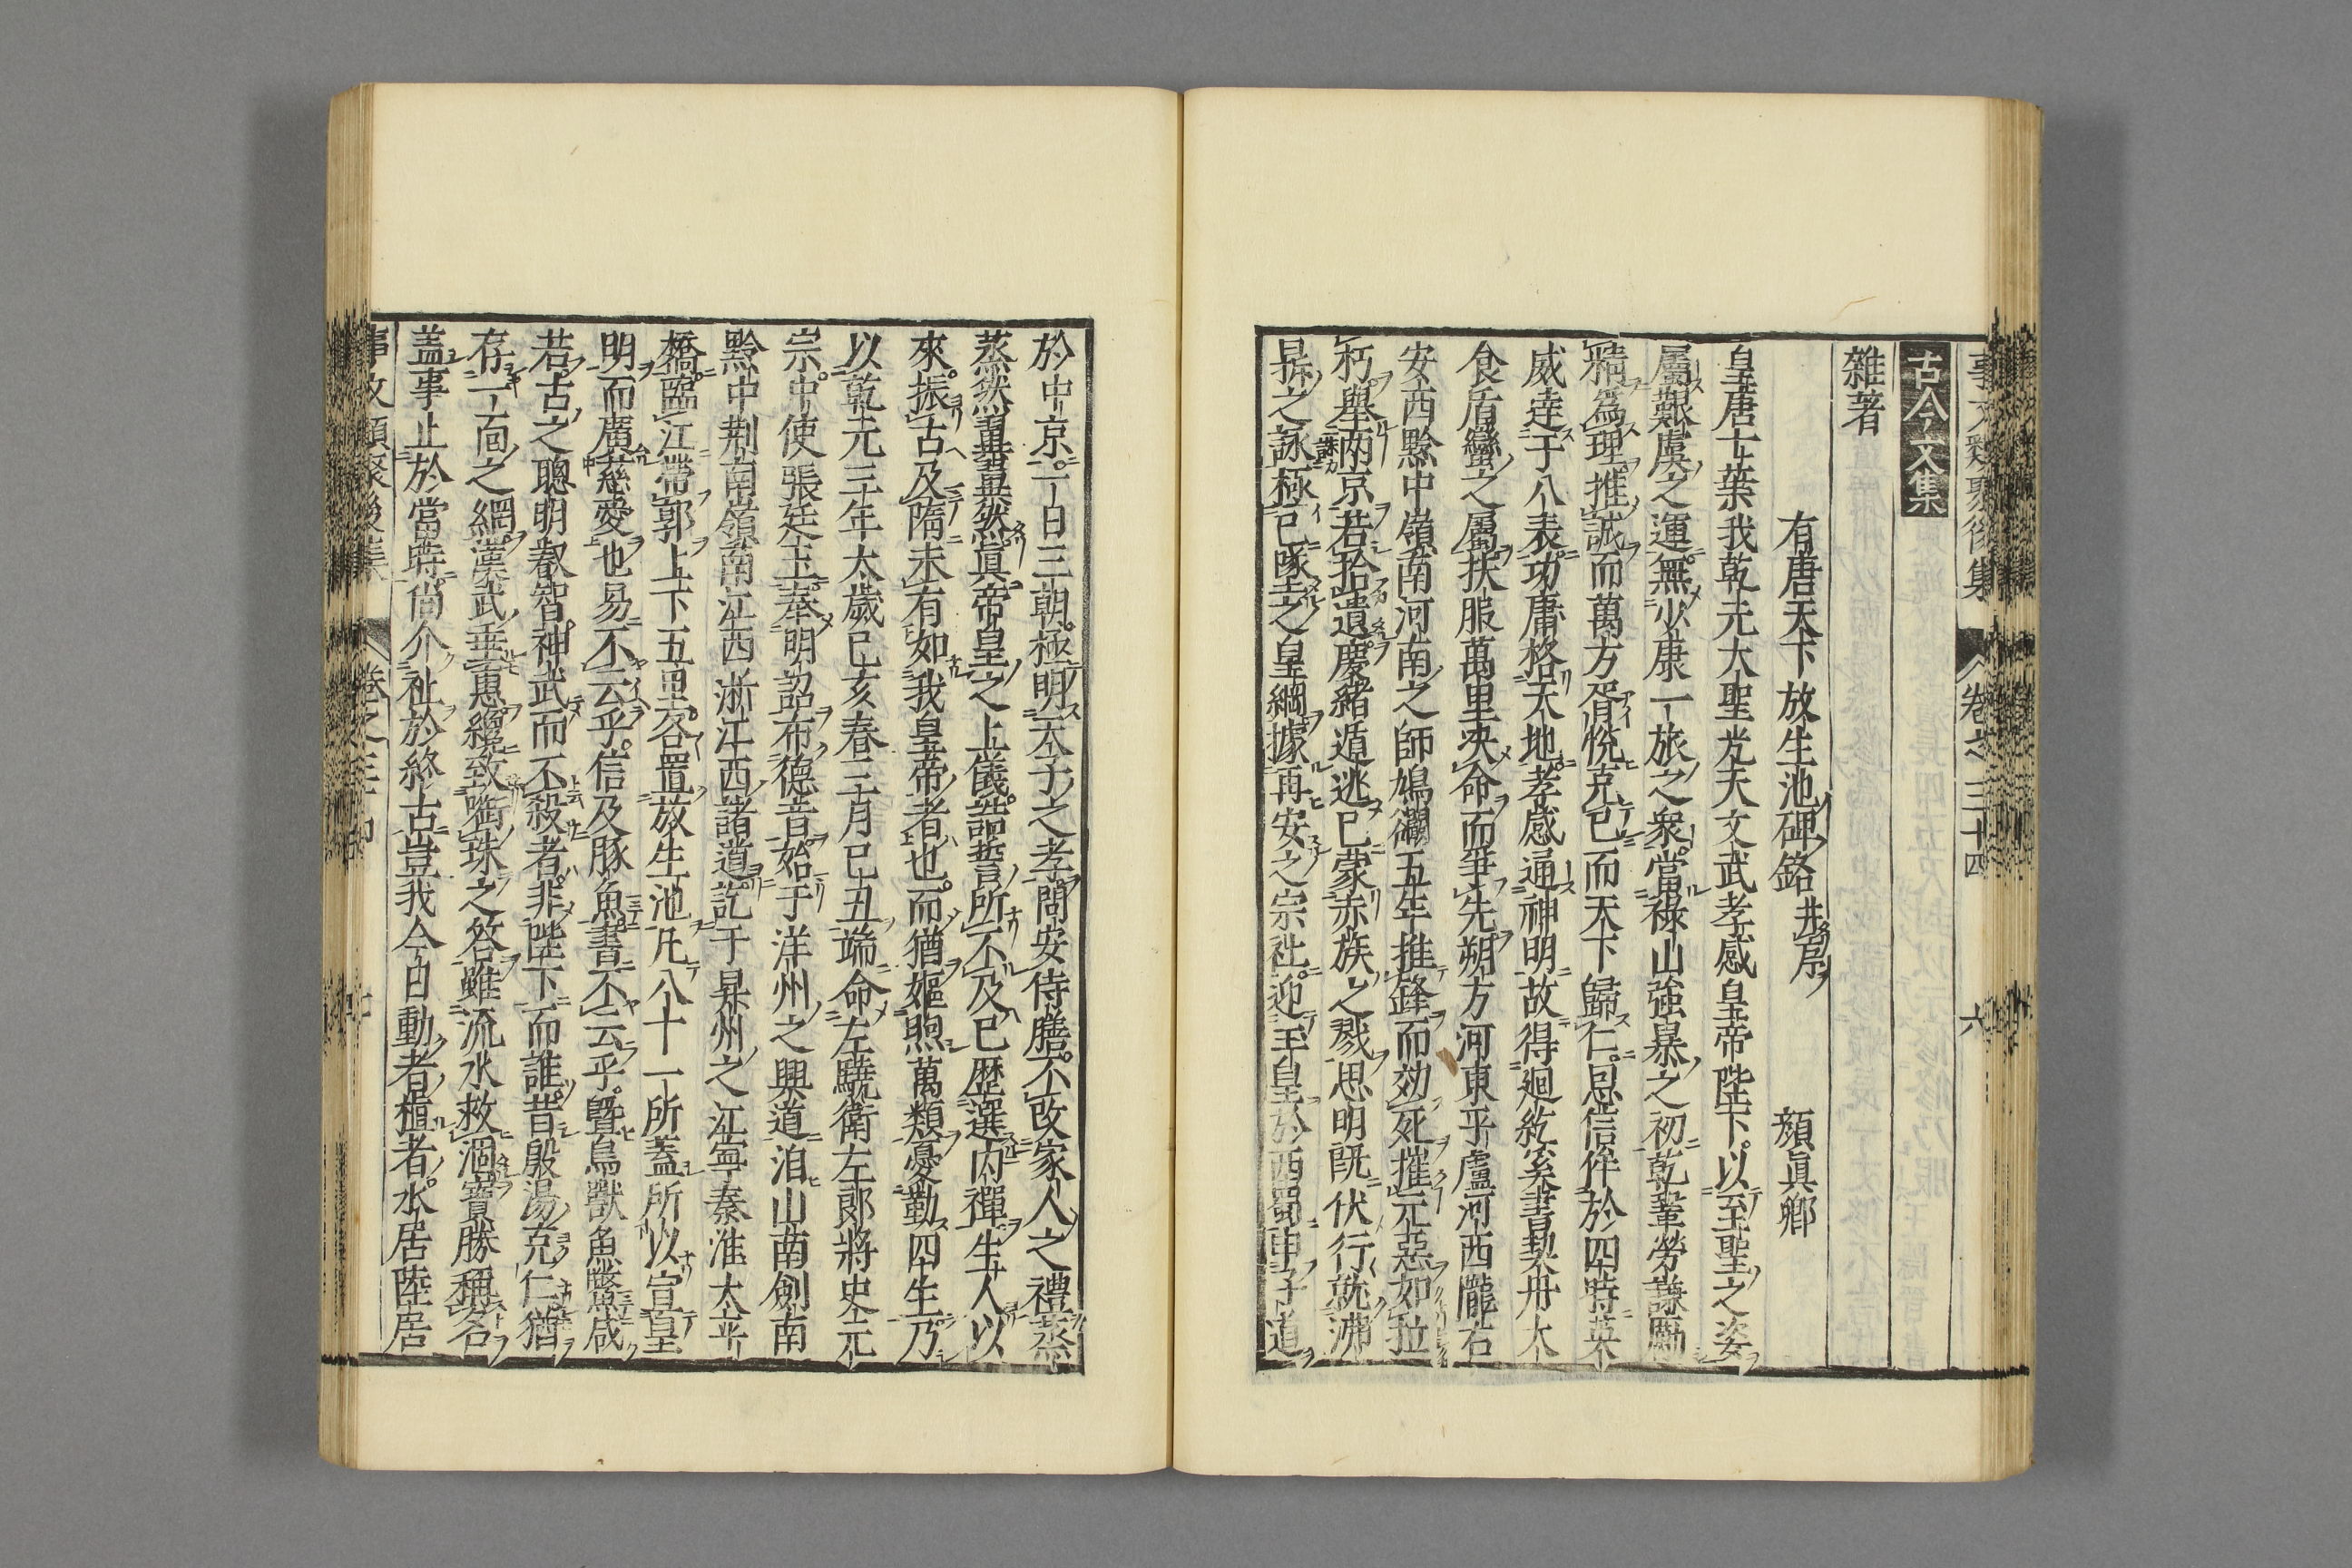 事文類聚後集 卷之三十四 六
古今文集
雜著
有唐天下放生池碑銘 并序 顏眞卿
皇唐七葉我乾元大聖光天文武孝感皇帝陛下以至聖之姿
屬艱虞之運無少康一旅之衆當祿山強暴之初乾鞏勞謙勵
精爲理推誠而萬方胥悅克已而天下歸仁恩信侔於四時英
威達于八表功庸格天地孝感通神明故得廻紇奚書契丹大
食盾蠻之屬扶服萬里决命而爭先朔方河東乎盧河西隴右
安西黔中嶺南河南之師鳩闞五年推鋒而効死摧元惡如拉
朽舉兩京若拾遺慶緒遁逃已蒙赤族之戮思明旣伏行就沸
昇之詠極已隊之皇綱據再安之宗社迎上皇於西蜀申子道
於中京一日三朝極明天子之孝問安侍膳不改家人之禮蒸
蒸然翼翼然眞帝皇之上儀誥誓所不及已歷選內禪生人以
來振古及隋未有如我皇帝者也而猶嫗煦萬類憂勤四生乃
以乾元二年太歲已亥春三月已丑端命左驍衛左郎將史元
宗中使張廷玉奉明詔布德音始于洋州之興道洎山南劍南
黔中荆南嶺南江西浙江西諸道訖于昇州之江寧秦淮太平
橋臨江帶郭上下五里各置放生池凡八十一所蓋所以宣皇
明而廣慈愛也易不云乎信及豚魚書不云乎曁鳥獸魚鼈咸
若古之聰明叡智神武而不殺者非陛下而誰昔殷湯克仁猶
存一面之網漢武垂惠纔致銜珠之答雖流水救涸寶勝稱名
盖事止於當時尙介祉於終古豈我今日動者植者水居陸居
事文類聚後集 卷之三十四